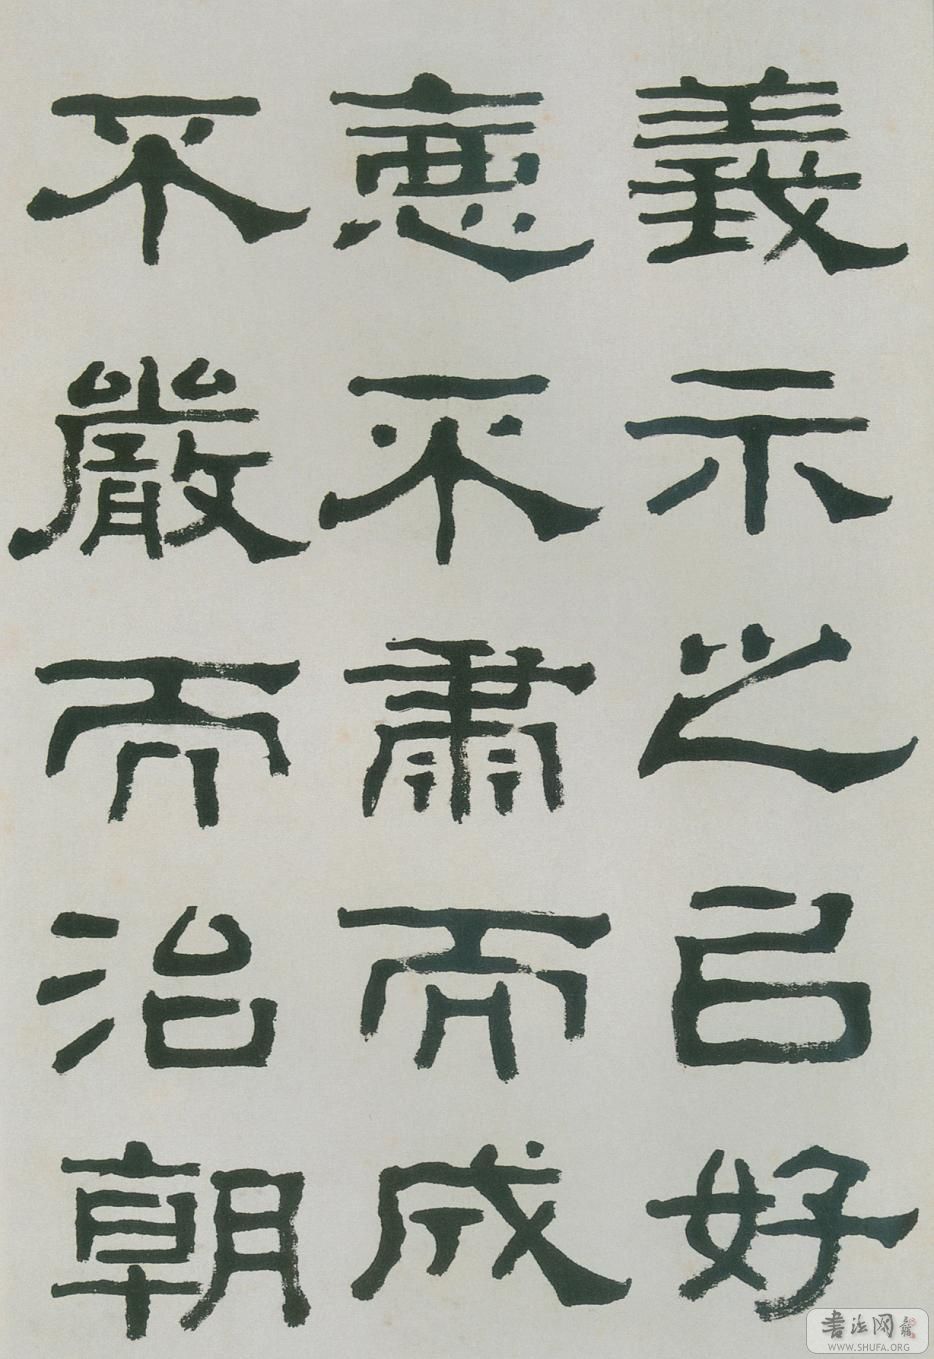 義示之㠯好
惡不肅而成
不嚴而治朝
書法网
WWW.SHUFA.ORG